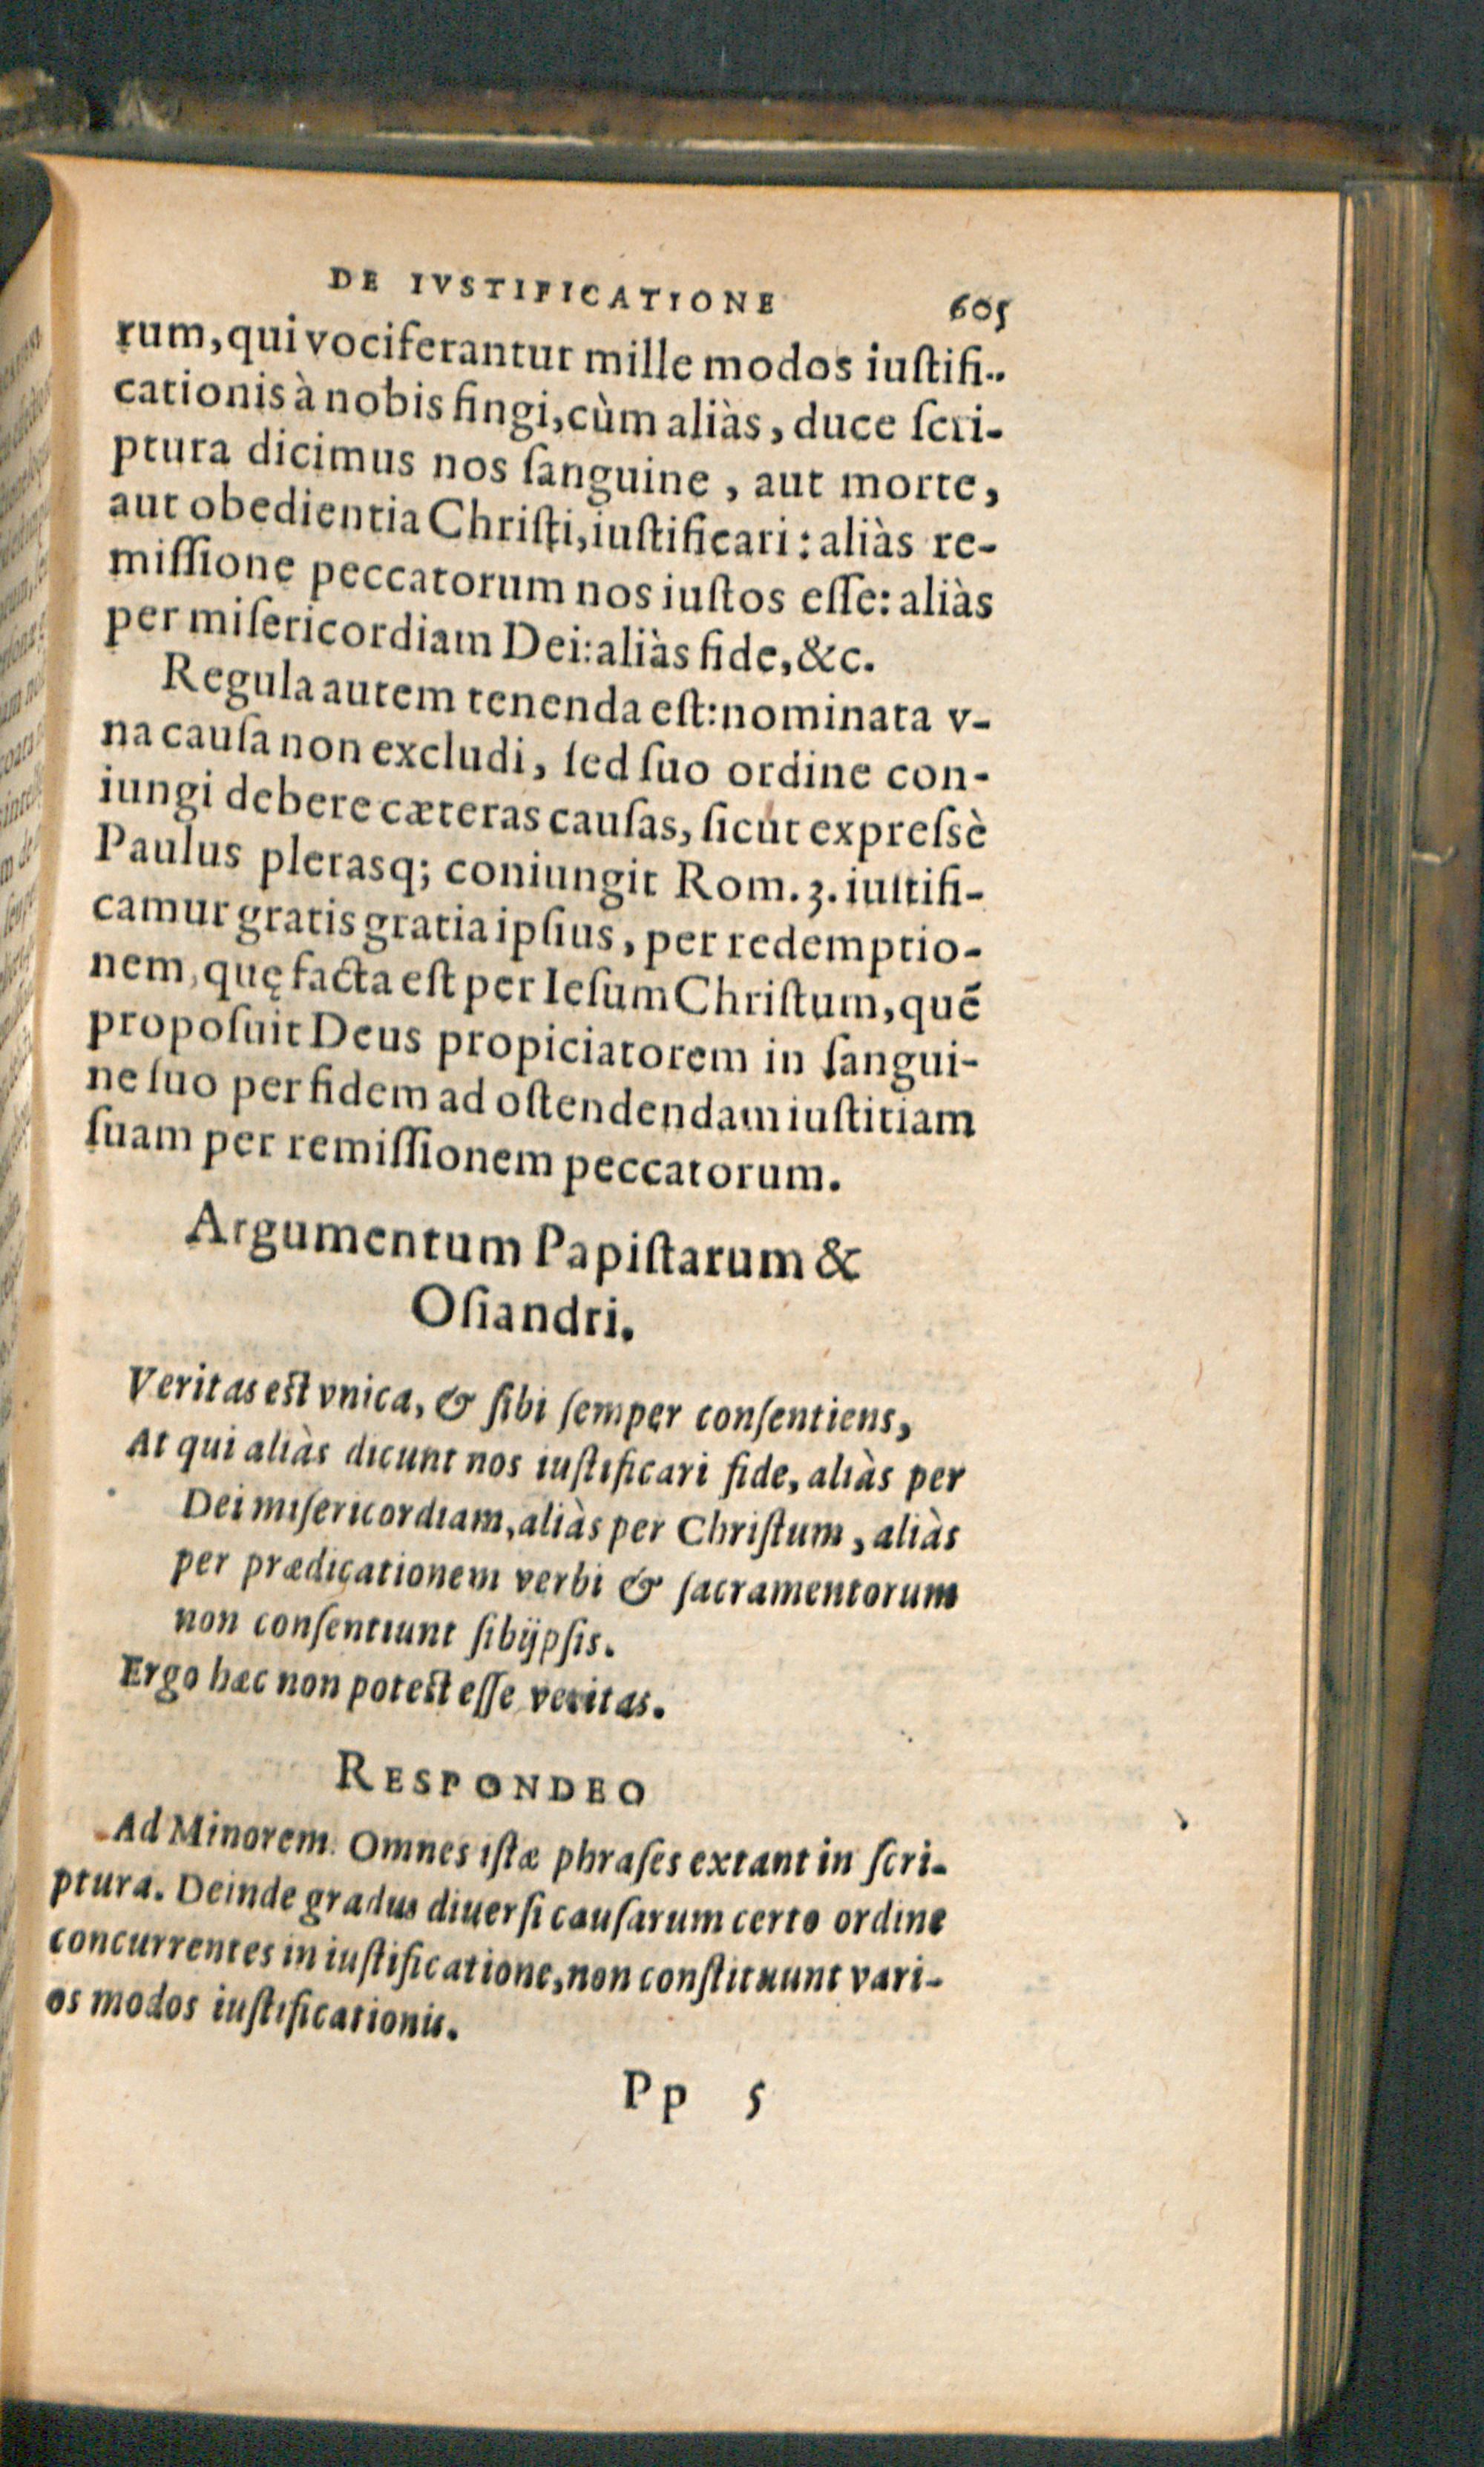 DE IVSTIFICATIONE 605
rum, qui vociferantur mille modos iuſtifi-
cationis à nobis fingi, cùm aliàs, duce ſcri-
ptura dicimus nos ſanguine, aut morte,
aut obedientia Chriſti, iuſtificari: aliàs re-
miſſione peccatorum nos iuſtos eſſe: aliàs
per miſericordiam Dei: aliàs fide, &c.
Regula autem tenenda eſt: nominata v-
na cauſa non excludi, ſed ſuo ordine con-
iungi debere cæteras cauſas, ſicut expreſsè
Paulus plerasq; coniungit Rom. 3. iuſtifi-
camur gratis gratia ipſius, per redemptio-
nem, quę facta eſt per Ieſum Chriſtum, quē
propoſuit Deus propiciatorem in ſangui-
ne ſuo per fidem ad oſtendendam iuſtitiam
ſuam per remiſſionem peccatorum.
Argumentum Papiſtarum &
Oſiandri.
Veritas eſt vnica, & ſibi ſemper conſentiens,
At qui aliàs dicunt nos iuſtificari fide, aliàs per
Dei miſericordiam, aliàs per Chriſtum, aliàs
per prædicationem verbi & ſacramentorum
non conſentiunt ſibijpſis.
Ergo hæc non poteſt eſſe veritas.
RESPONDEO
Ad Minorem. Omnes iſtæ phraſes extant in ſcri-
ptura. Deinde gradus diuerſi cauſarum certo ordine
concurrentes in iuſtificatione, non conſtituunt vari-
os modos iuſtificationis.
Pp 5